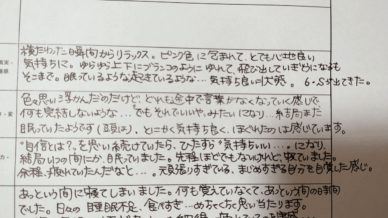 横たわった瞬間からリラックス。ピンク色に包まれて、とても心地良い
気持ちに。ゆらゆら上下にブランコのようにゆれて、飛び出していきそうになるも
そこまで。眠っているような起きているような…気持ち良い
色々思い浮かんだのだけど、どれも途中で言葉がなくなっていく感じで
何も完結しないような…"でもそれでいいや"みたいになり、結局また
眠っていたようです(頭は)。とにかく気持ち良く、ほぐれたのは感じています。
"自信とは?"を思い続けていたら、ひたすら"気持ちいい…"になり、
結局いつの間にか、眠っていました。先程ほどでもないけれど、寝ていました。
余程、疲れていたんだなと…。元気張りすぎている、まじめすぎる自分を自覚した感じ。
あっという間に寝てしまいました。何も覚えていなくて、あっという間の時間
でした。日々の睡眠不足、食べすぎ…めちゃくちゃ思い当たります。